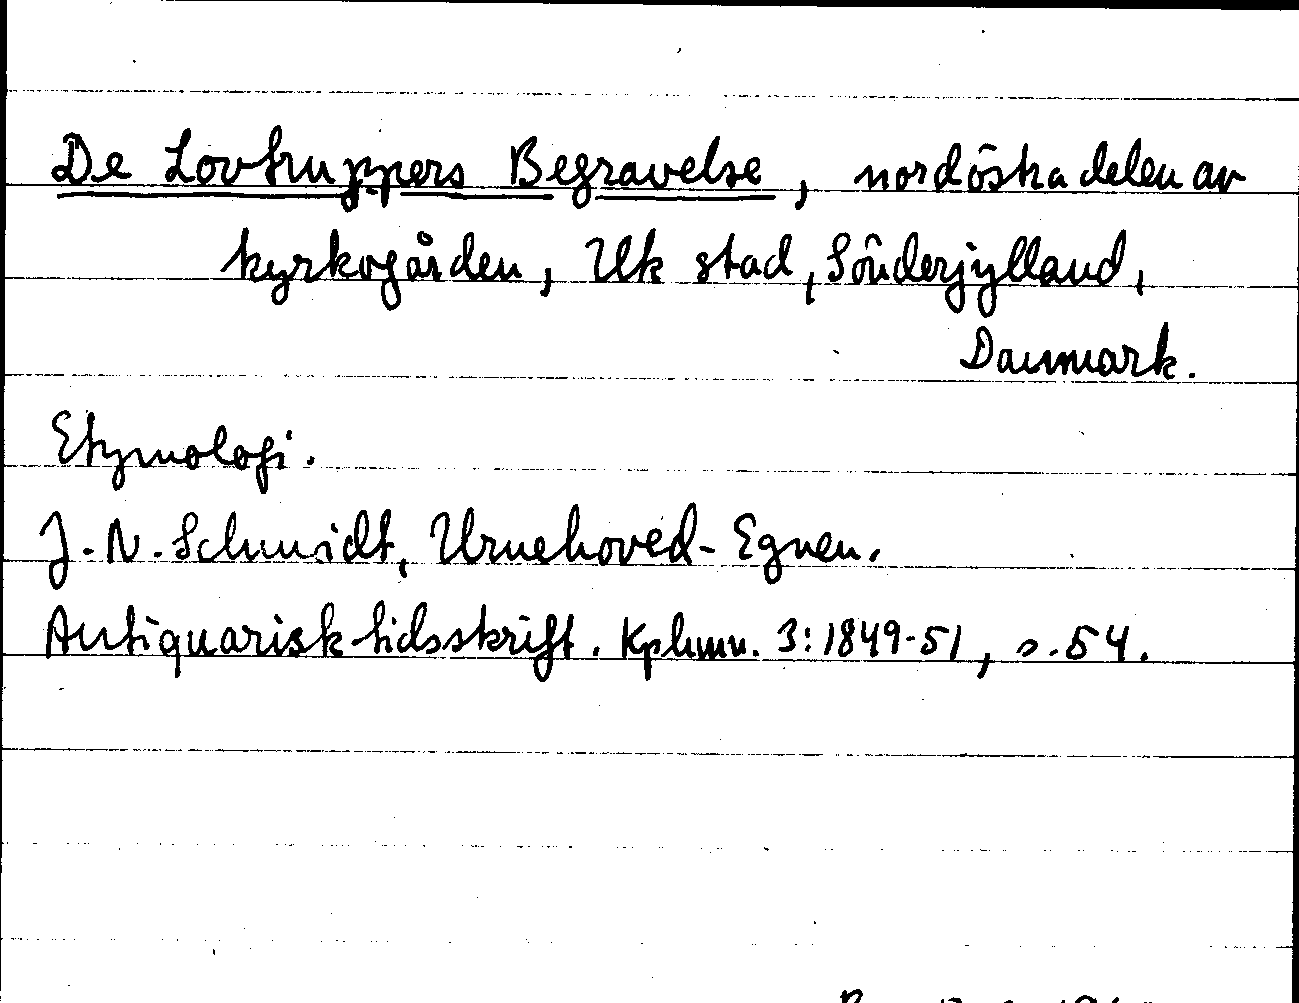 De Lovtruppers Begravelse, nordöstra delen av
kyrkogården, Uk stad, Sönderjylland,
Danmark.
Etymologi.
J. N. Schmidt, Urnehoved-Egnen.
Antiquarisk tidsskrift. Kphmn. 3: 1849-51, s. 54.